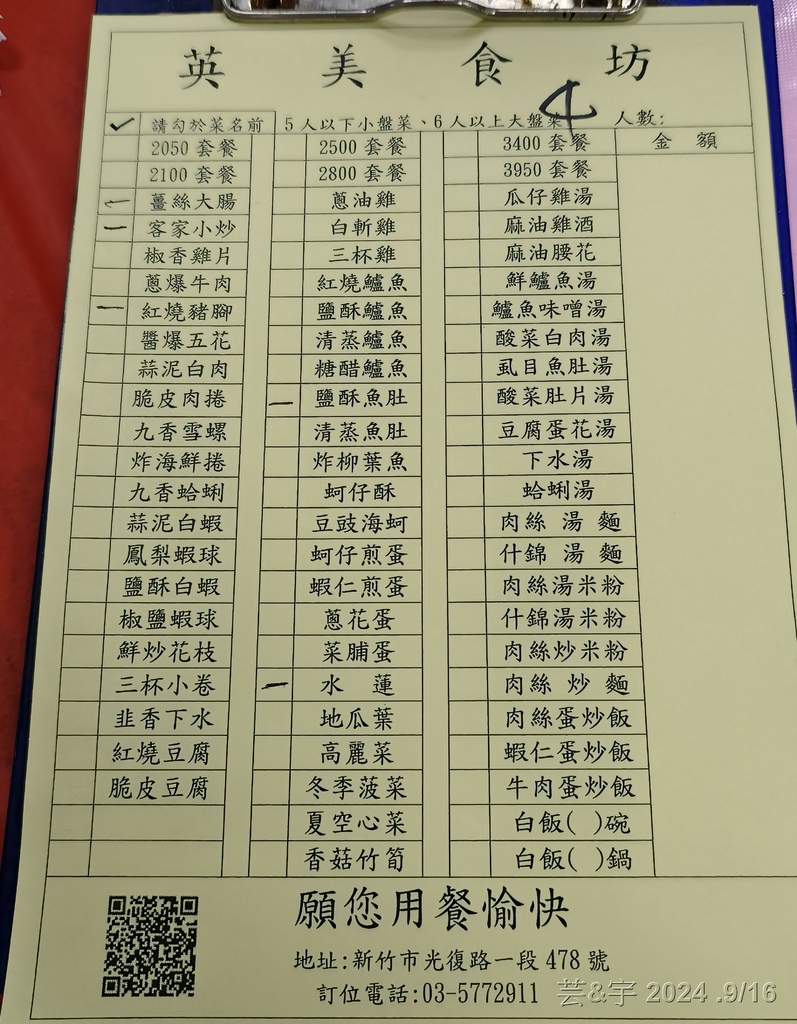 英 美 食 坊
✓ 請勾於菜名前 5人以下小盤菜、6人以上大盤菜 4 人數:
2050 套餐 2500 套餐 3400 套餐 金 額
2100 套餐 2800 套餐 3950 套餐
一 薑絲大腸 蔥油雞 瓜仔雞湯
一 客家小炒 白斬雞 麻油雞酒
椒香雞片 三杯雞 麻油腰花
蔥爆牛肉 紅燒鱸魚 鮮鱸魚湯
一 紅燒豬腳 鹽酥鱸魚 鱸魚味噌湯
醬爆五花 清蒸鱸魚 酸菜白肉湯
蒜泥白肉 糖醋鱸魚 虱目魚肚湯
脆皮肉捲 一 鹽酥魚肚 酸菜肚片湯
九香雪螺 清蒸魚肚 豆腐蛋花湯
炸海鮮捲 炸柳葉魚 下水湯
九香蛤蜊 蚵仔酥 蛤蜊湯
蒜泥白蝦 豆豉海蚵 肉絲 湯 麵
鳳梨蝦球 蚵仔煎蛋 什錦 湯 麵
鹽酥白蝦 蝦仁煎蛋 肉絲湯米粉
椒鹽蝦球 蔥花蛋 什錦湯米粉
鮮炒花枝 菜脯蛋 肉絲炒米粉
三杯小卷 一 水 蓮 肉絲 炒 麵
韭香下水 地瓜葉 肉絲蛋炒飯
紅燒豆腐 高麗菜 蝦仁蛋炒飯
脆皮豆腐 冬季菠菜 牛肉蛋炒飯
夏空心菜 白飯( )碗
香菇竹筍 白飯( )鍋
願您用餐愉快
地址:新竹市光復路一段 478 號
訂位電話:03-5772911
芸&宇 2024 .9/16